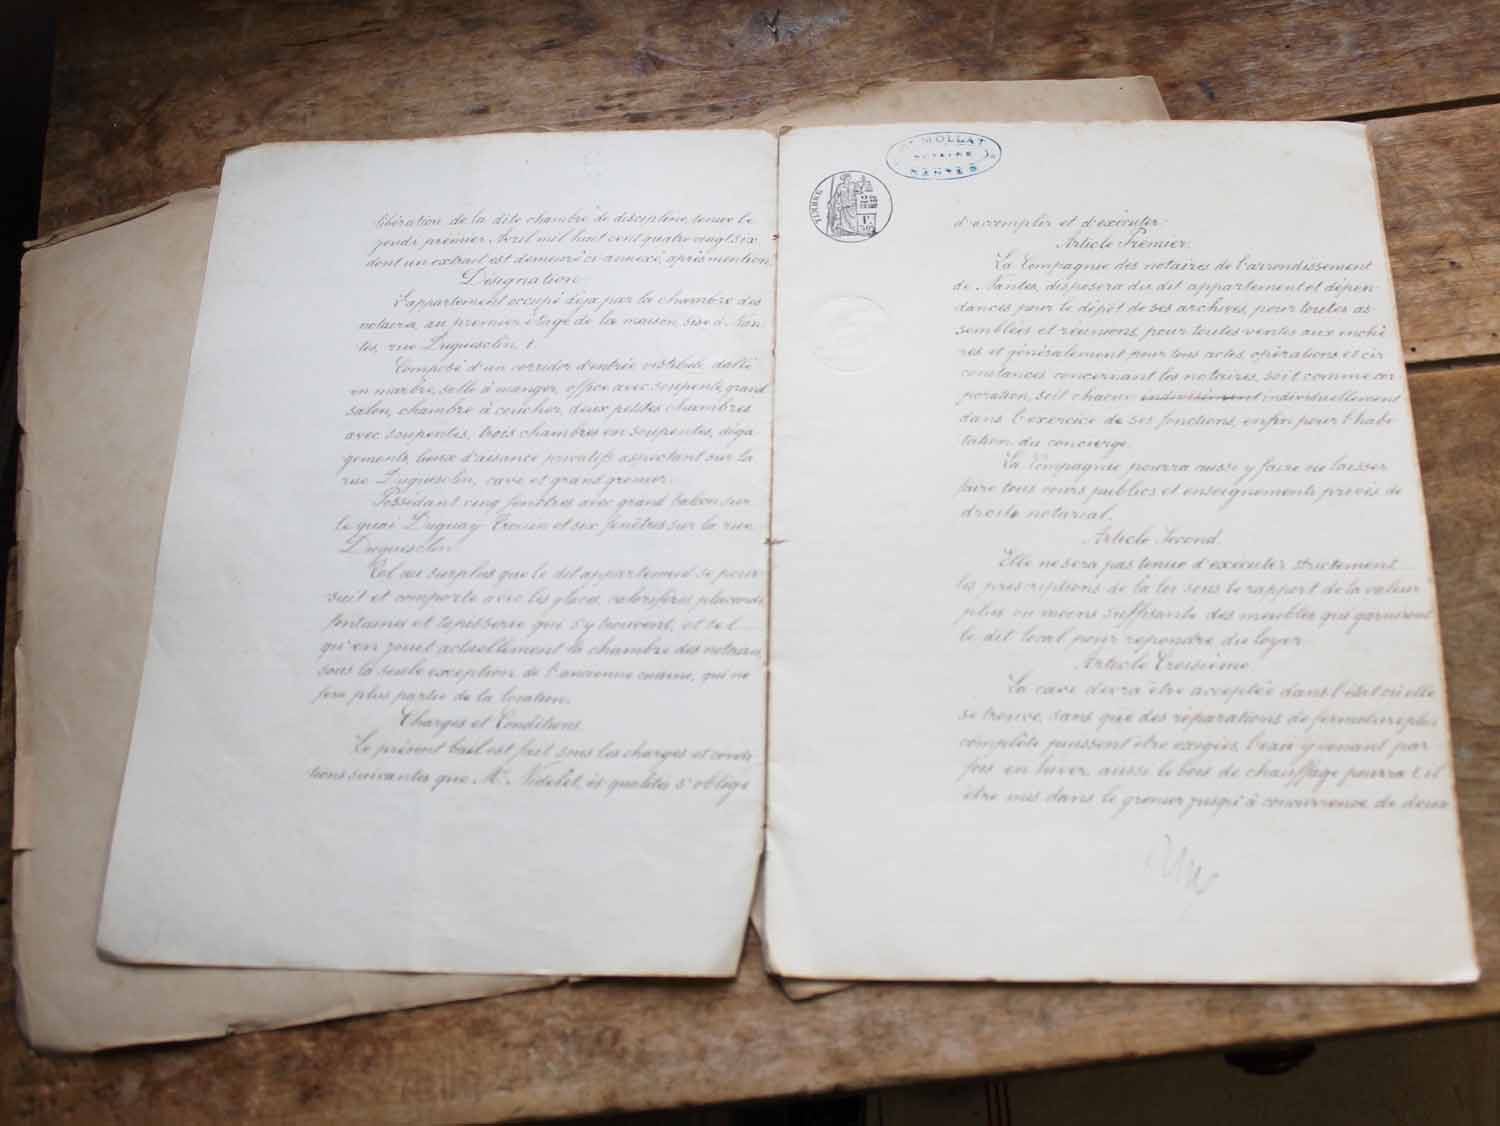 libération de la dite chambre de discipline, tenue le
jeudi premier Avril mil huit cent quatre vingt six
dont un extrait est demeuré ci-annexé, après mention
Désignation
L'appartement occupé déjà par la chambre des
notaires, au premier étage de la maison, sise à Nan-
tes, rue Duguesclin, 1
Composé d'un corridor d'entrée vestibule dallé
en marbre, salle à manger, office avec soupente, grand
salon, chambre à coucher, deux petites chambres
avec soupentes, trois chambres en soupentes, déga-
gements, lieux d'aisance privatifs aspectant sur la
rue Duguesclin, cave et grand grenier.
Possédant cinq fenêtres avec grand balcon sur
le quai Duguay Trouin et six fenêtres sur la rue
Duguesclin
Tel au surplus que le dit appartement se pour
suit et comporte avec les glaces, calorifères placards
fontaines et tapisserie qui s'y trouvent, et tel
qu'en jouit actuellement la chambre des notaires,
sous la seule exception de l'ancienne cuisine, qui ne
fera plus partie de la location.
Charges et Conditions
Le présent bail est fait sous les charges et condi
tions suivantes que Mr. ès qualités s'oblige
MOLLAT
NOTAIRE
NANTES
TIMBRE
d'accomplir et d'exécuter
Article Premier.
La Compagnie des notaires de l'arrondissement
de Nantes, disposera du dit appartement et dépen-
dances pour le dépôt de ses archives, pour toutes as-
semblées et réunions, pour toutes ventes aux enchè
res et généralement pour tous actes, opérations et cir
constances concernant les notaires, soit comme cor
poration, soit chacun indivisément individuellement
dans l'exercice de ses fonctions, enfin pour l'habi
tation du concierge.
La Compagnie pourra aussi y faire ou laisser
faire tous cours publics et enseignements privés de
droit notarial.
Article Second.
Elle ne sera pas tenue d'exécuter strictement
les prescriptions de la loi sous le rapport de la valeur
plus ou moins suffisante des meubles qui garniront
le dit local pour répondre du loyer
Article Troisième
La cave devra être acceptée dans l'état où elle
se trouve, sans que des réparations de fermeture plus
complète puissent être exigées, l'eau y venant par
fois en hiver, aussi le bois de chauffage pourra t-il
être mis dans le grenier jusqu'à concurrence de deux